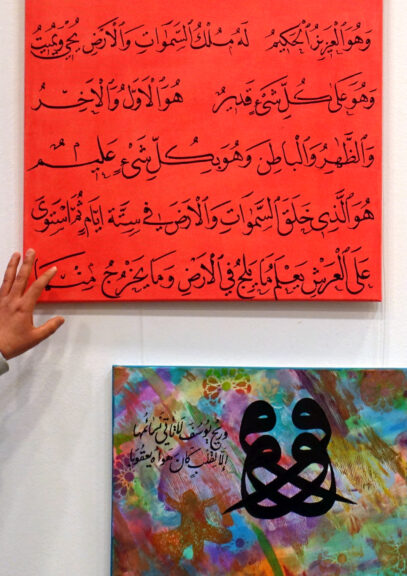 وَهُوَ الْعَزِيزُ الْحَكِيمُ لَهُ مُلْكُ السَّمَوَاتِ وَالْأَرْضِ يُحْيِي وَيُمِيتُ
وَهُوَ عَلَى كُلِّ شَيْءٍ قَدِيرٌ هُوَ الْأَوَّلُ وَالْآخِرُ
وَالظَّهِرُ وَالْبَاطِنُ وَهُوَ بِكُلِّ شَيْءٍ عَلِيمٌ
هُوَ الَّذِي خَلَقَ السَّمَوَاتِ وَالْأَرْضَ فِي سِتَّةِ أَيَّامٍ ثُمَّ اسْتَوَى
عَلَى الْعَرْشِ يَعْلَمُ مَا يَلِجُ فِي الْأَرْضِ وَمَا يَخْرُجُ مِنْهَا
وريح يوسف لا تأتي نسائمها
إلا لقلب كان هواه يعقوبا